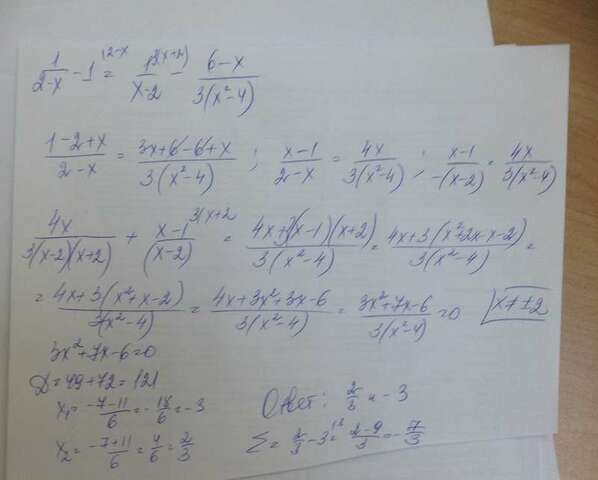 1/(2-x) - 1^{(2-x} = 1^{3(x+2)}/(x-2) - (6-x)/(3(x²-4))
(1-2+x)/(2-x) = (3x+6-6+x)/(3(x²-4)) ; (x-1)/(2-x) = 4x/(3(x²-4)) ; (x-1)/(-(x-2)) = 4x/(3(x²-4))
4x/(3(x-2)(x+2)) + (x-1)^{3(x+2}/(x-2) = (4x+3(x-1)(x+2))/(3(x²-4)) = (4x+3(x²+2x-x-2))/(3(x²-4)) =
= (4x+3(x²+x-2))/(3(x²-4)) = (4x+3x²+3x-6)/(3(x²-4)) = (3x²+7x-6)/(3(x²-4)) = 0 x≠±2
3x²+7x-6=0
D=49+72=121
x₁= (-7-11)/6 = -18/6 = -3
x₂ = (-7+11)/6 = 4/6 = 2/3
Ответ: 2/3 и -3
Σ = 2/3 - 3^{(3} = (2-9)/3 = -7/3